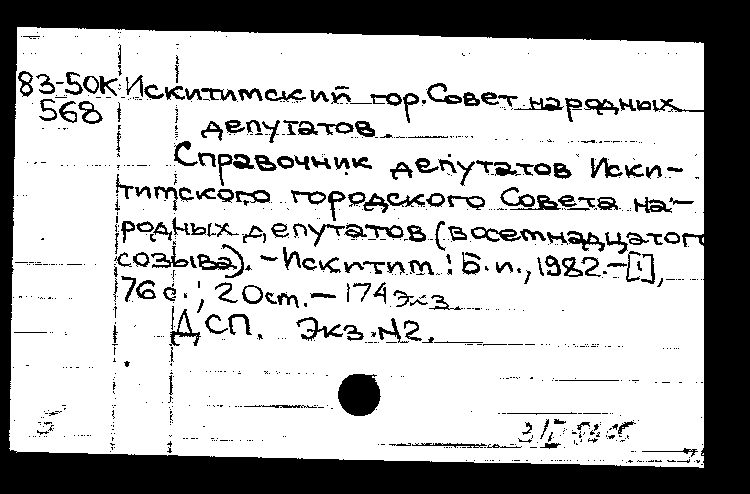 83-50К Искитимский гор. Совет народных
568 депутатов.
Справочник депутатов Иски-
тимского городского Совета на-
родных депутатов (восемнадцатого
созыва). – Искитим: Б.и., 1982. – [1],
76 с.; 20 см. – 174 экз.
ДСП. Экз. N2.
5